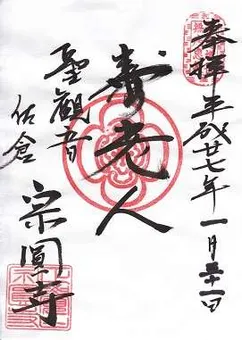 奉拝
平成廿七年一月三十一日
寿老人
聖観音
佐倉
宗圓寺